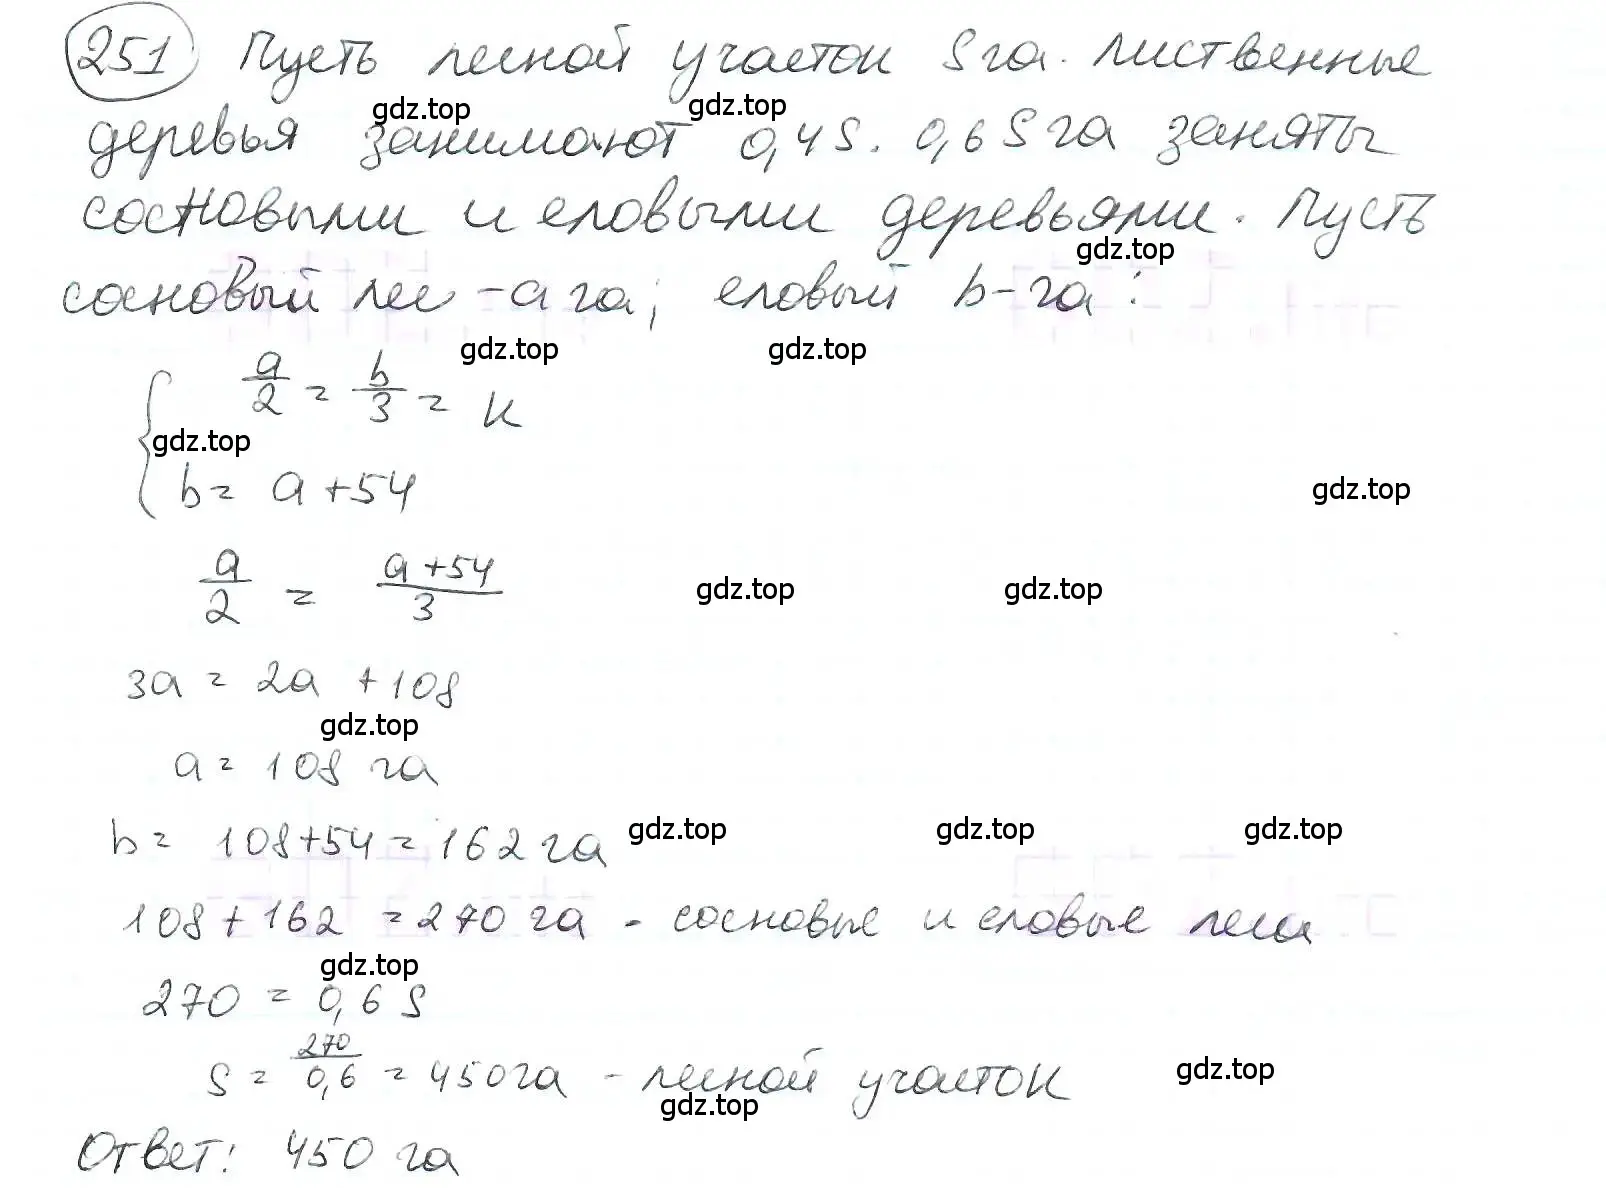 251 Пусть лесной участок S га. Лиственные
gdz.top gdz.top
деревья занимают 0,4S. 0,6S га заняты
сосновыми и еловыми деревьями. Пусть
gdz.top
сосновый лес - a га; еловый b-га:
gdz.top gdz.top
a/2 = b/3 = k
gdz.top
b = a + 54
gdz.top
a/2 = (a + 54)/3
gdz.top gdz.top
3a = 2a + 108
gdz.top
a = 108 га
b = 108 + 54 = 162 га
gdz.top gdz.top gdz.top
108 + 162 = 270 га - сосновые и еловые леса
gdz.top
270 = 0,6 S
S = 270/0,6 = 450 га - лесной участок
gdz.top
gdz.top
Ответ: 450 га